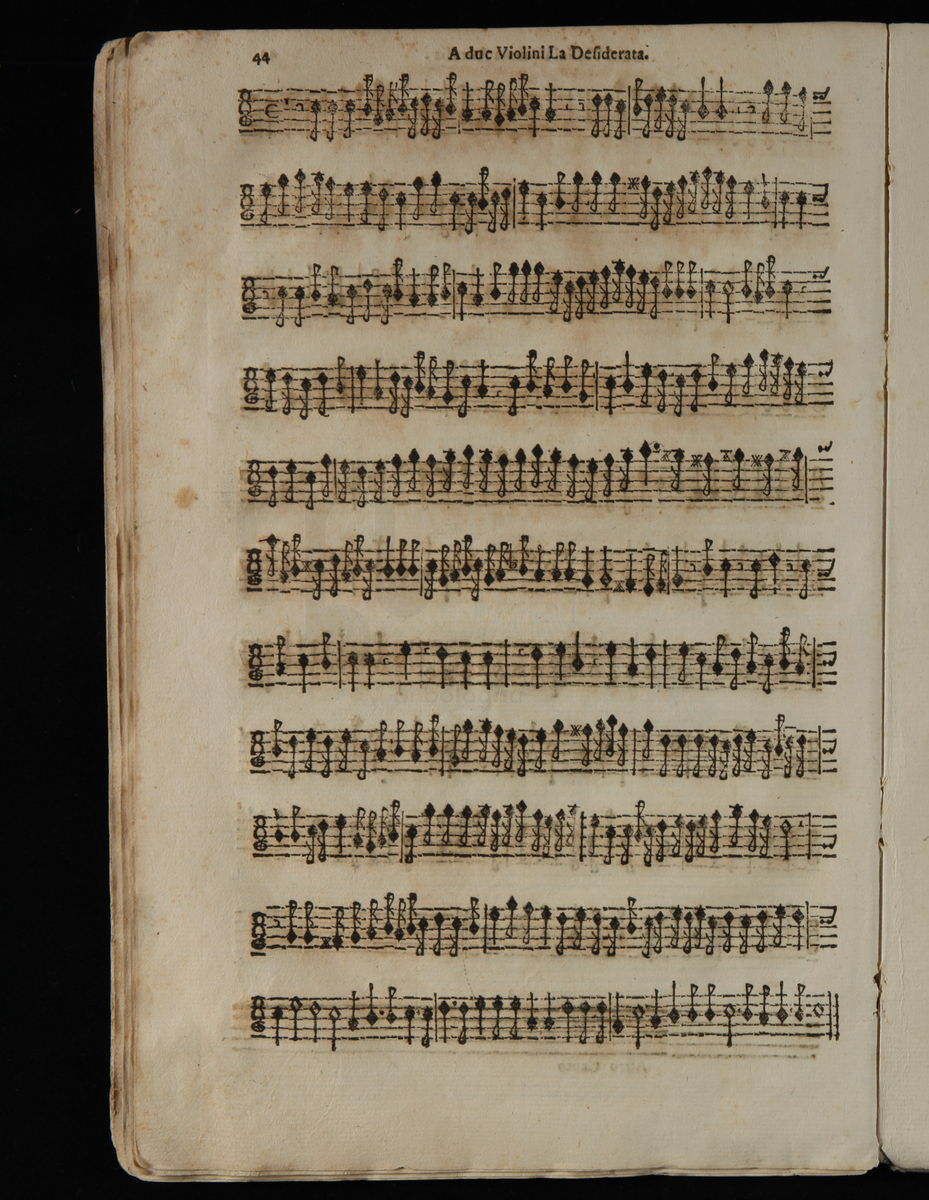 44
A due Violini La Desiderata.